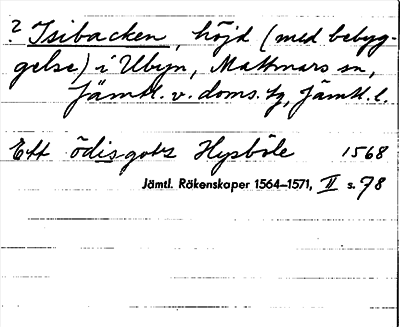 ? Isibacken, höjd (med bebyg-
gelse) i Ubyn, Mattmars sn,
Jämtl. v. doms. tg, Jämtl. l.
Ett ödisgotz Hysböle 1568
Jämtl. Räkenskaper 1564–1571, II s. 78